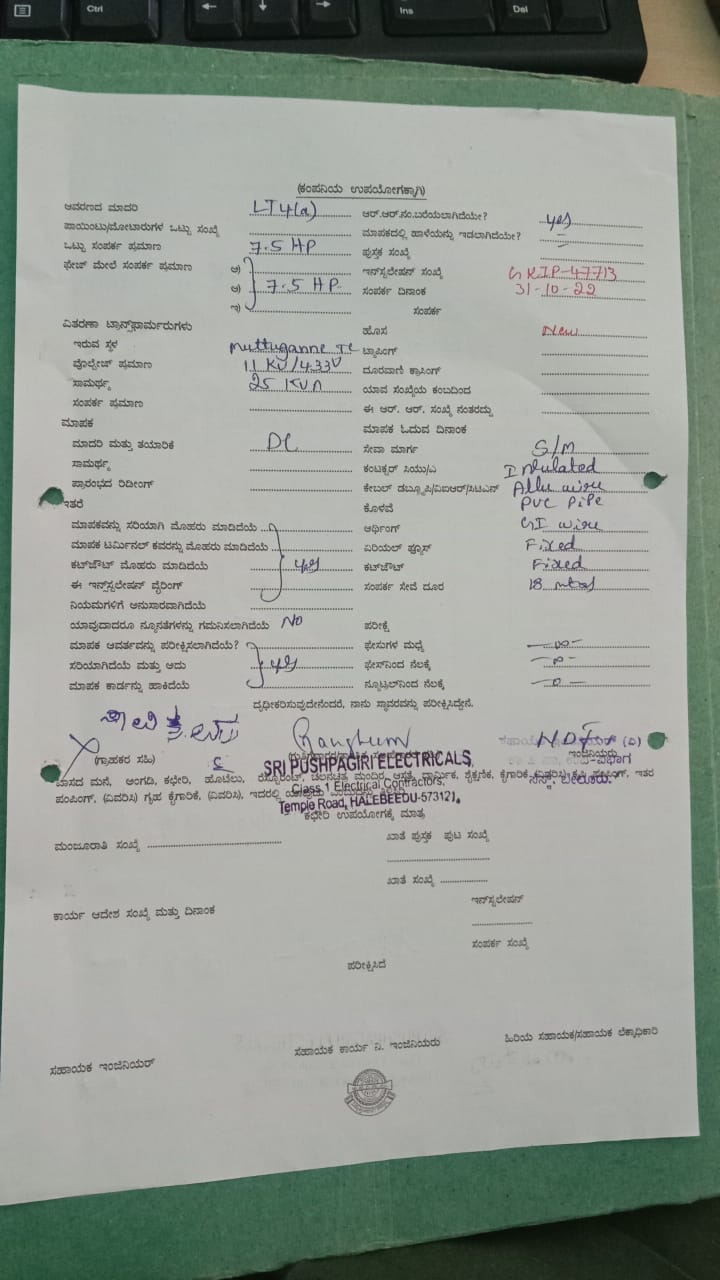 Ctrl
Ins
Del
(ಕಂಪನಿಯ ಉಪಯೋಗಕ್ಕಾಗಿ)
ಆವರಣದ ಮಾದರಿ LT4(a) ಆರ್.ಆರ್.ನಂ.ಬರೆಯಲಾಗಿದೆಯೇ? yes
ಪಾಯಿಂಟು/ಮೋಟಾರುಗಳ ಒಟ್ಟು ಸಂಖ್ಯೆ ಮಾಪಕದಲ್ಲಿ ಹಾಳೆಯನ್ನು ಇಡಲಾಗಿದೆಯೇ?
ಒಟ್ಟು ಸಂಪರ್ಕ ಪ್ರಮಾಣ 7.5 HP ಪುಸ್ತಕ ಸಂಖ್ಯೆ
ಫೇಜ್ ಮೇಲೆ ಸಂಪರ್ಕ ಪ್ರಮಾಣ ಅ) ಇನ್‌ಸ್ಟಲೇಷನ್ ಸಂಖ್ಯೆ GKIP-47713
ಆ) 7.5 HP ಸಂಪರ್ಕ ದಿನಾಂಕ 31-10-22
ಇ) ಸಂಪರ್ಕ
ವಿತರಣಾ ಟ್ರಾನ್ಸ್‌ಫಾರ್ಮರುಗಳು ಹೊಸ New
ಇರುವ ಸ್ಥಳ Muttuganne TC ಟ್ಯಾಪಿಂಗ್
ವೋಲ್ಟೇಜ್ ಪ್ರಮಾಣ 11 KV/433V ದೂರವಾಣಿ ಕ್ರಾಸಿಂಗ್
ಸಾಮರ್ಥ್ಯ 25 KVA ಯಾವ ಸಂಖ್ಯೆಯ ಕಂಬದಿಂದ
ಸಂಪರ್ಕ ಪ್ರಮಾಣ ಈ ಆರ್. ಆರ್. ಸಂಖ್ಯೆ ನಂತರದ್ದು
ಮಾಪಕ ಮಾಪಕ ಓದುವ ದಿನಾಂಕ
ಮಾದರಿ ಮತ್ತು ತಯಾರಿಕೆ DC ಸೇವಾ ಮಾರ್ಗ S/M
ಸಾಮರ್ಥ್ಯ ಕಂಟಕ್ಟರ್ ಸಿಯು/ಎ Insulated
ಪ್ರಾರಂಭದ ರಿಡೀಂಗ್ ಕೇಬಲ್ ಡಬ್ಲ್ಯೂಪಿ/ವಿಐಆರ್/ಸಿಟಿಎಸ್ Allu wire
ಇತರೆ ಕೊಳವೆ PVC PiPe
ಮಾಪಕವನ್ನು ಸರಿಯಾಗಿ ಮೊಹರು ಮಾಡಿದೆಯೆ ಅರ್ಥಿಂಗ್ GI wire
ಮಾಪಕ ಟರ್ಮಿನಲ್ ಕವರನ್ನು ಮೊಹರು ಮಾಡಿದೆಯೆ ಏರಿಯಲ್ ಫ್ಯೂಸ್ Fixed
ಕಟ್‌ಔಟ್ ಮೊಹರು ಮಾಡಿದೆಯೆ yes ಕಟ್‌ಔಟ್ Fixed
ಈ ಇನ್ಸ್‌ಟಲೇಷನ್ ವೈರಿಂಗ್ ಸಂಪರ್ಕ ಸೇವೆ ದೂರ 18 mtrs
ನಿಯಮಗಳಿಗೆ ಅನುಸಾರವಾಗಿದೆಯೆ
ಯಾವುದಾದರೂ ನ್ಯೂನತೆಗಳನ್ನು ಗಮನಿಸಲಾಗಿದೆಯೆ No ಪರೀಕ್ಷೆ
ಮಾಪಕ ಆವರ್ತವನ್ನು ಪರೀಕ್ಷಿಸಲಾಗಿದೆಯೆ? ಫೇಸುಗಳ ಮಧ್ಯೆ ∞
ಸರಿಯಾಗಿದೆಯೆ ಮತ್ತು ಅದು yes ಫೇಸ್‌ನಿಂದ ನೆಲಕ್ಕೆ
ಮಾಪಕ ಕಾರ್ಡನ್ನು ಹಾಕಿದೆಯೆ ನ್ಯೂಟ್ರಲ್‌ನಿಂದ ನೆಲಕ್ಕೆ
ದೃಢೀಕರಿಸುವುದೇನೆಂದರೆ, ನಾನು ಸ್ಥಾವರವನ್ನು ಪರೀಕ್ಷಿಸಿದ್ದೇನೆ.
(ಗ್ರಾಹಕರ ಸಹಿ) ಇಂಜಿನಿಯರು
SRI PUSHPAGIRI ELECTRICALS,
Class 1 Electrical Contractors,
Temple Road, HALEBEEDU-573121.
ವಾಸದ ಮನೆ, ಅಂಗಡಿ, ಕಛೇರಿ, ಹೊಟೆಲು, ರೆಸ್ಟೋರೆಂಟ್, ಚಲನಚಿತ್ರ ಮಂದಿರ, ಆಸ್ಪತ್ರೆ, ಧಾರ್ಮಿಕ, ಶೈಕ್ಷಣಿಕ, ಕೈಗಾರಿಕೆ (ವಿವರಿಸಿ) ಕೃಷಿ ಪಂಪಿಂಗ್, ಇತರ
ಪಂಪಿಂಗ್, (ವಿವರಿಸಿ) ಗೃಹ ಕೈಗಾರಿಕೆ, (ವಿವರಿಸಿ), ಇದರಲ್ಲಿ
ಕಛೇರಿ ಉಪಯೋಗಕ್ಕೆ ಮಾತ್ರ
ಮಂಜೂರಾತಿ ಸಂಖ್ಯೆ ಖಾತೆ ಪುಸ್ತಕ ಪುಟ ಸಂಖ್ಯೆ
ಖಾತೆ ಸಂಖ್ಯೆ
ಕಾರ್ಯ ಆದೇಶ ಸಂಖ್ಯೆ ಮತ್ತು ದಿನಾಂಕ ಇನ್‌ಸ್ಟಲೇಷನ್
ಸಂಪರ್ಕ ಸಂಖ್ಯೆ
ಪರೀಕ್ಷಿಸಿದೆ
ಸಹಾಯಕ ಇಂಜಿನಿಯರ್ ಸಹಾಯಕ ಕಾರ್ಯ ನಿ. ಇಂಜಿನಿಯರು ಹಿರಿಯ ಸಹಾಯಕ/ಸಹಾಯಕ ಲೆಕ್ಕಾಧಿಕಾರಿ